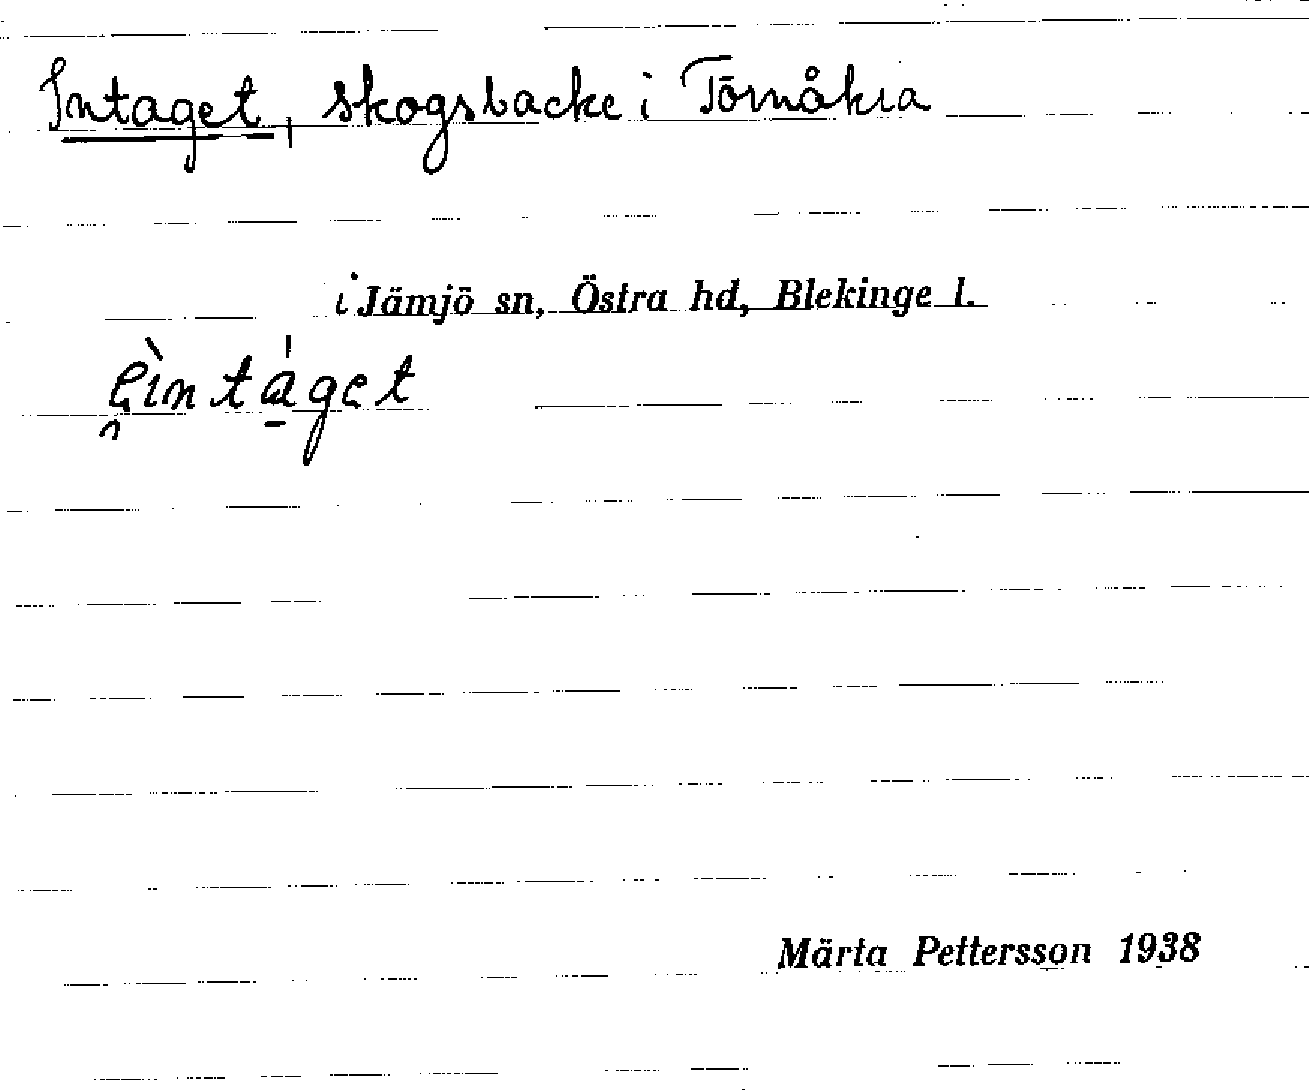 Intaget, skogsbacke i Törnåkra
i Jämjö sn, Östra hd, Blekinge l.
e̯ìntá̱get
Märta Pettersson 1938